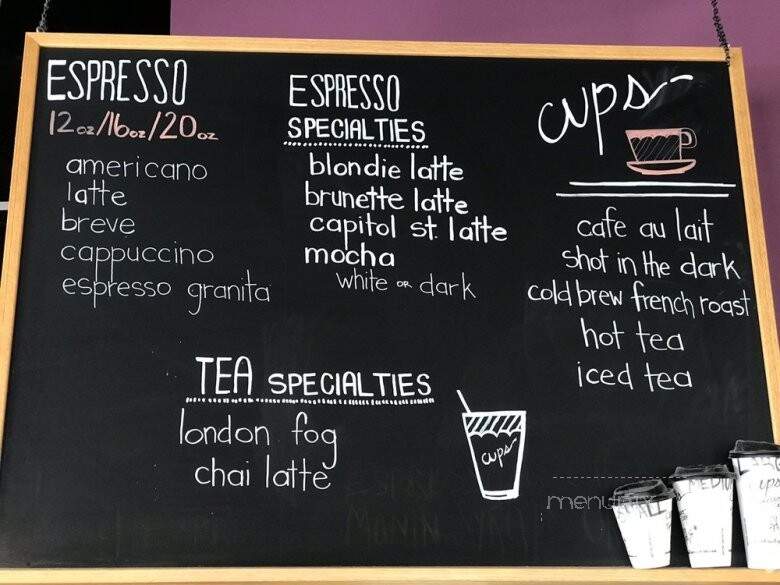 ESPRESSO
12oz/16oz/20oz
americano
latte
breve
cappuccino
espresso granita
ESPRESSO
SPECIALTIES
blondie latte
brunette latte
capitol st. latte
mocha
white or dark
cups
cafe au lait
shot in the dark
cold brew french roast
hot tea
iced tea
TEA SPECIALTIES
london fog
chai latte
cups